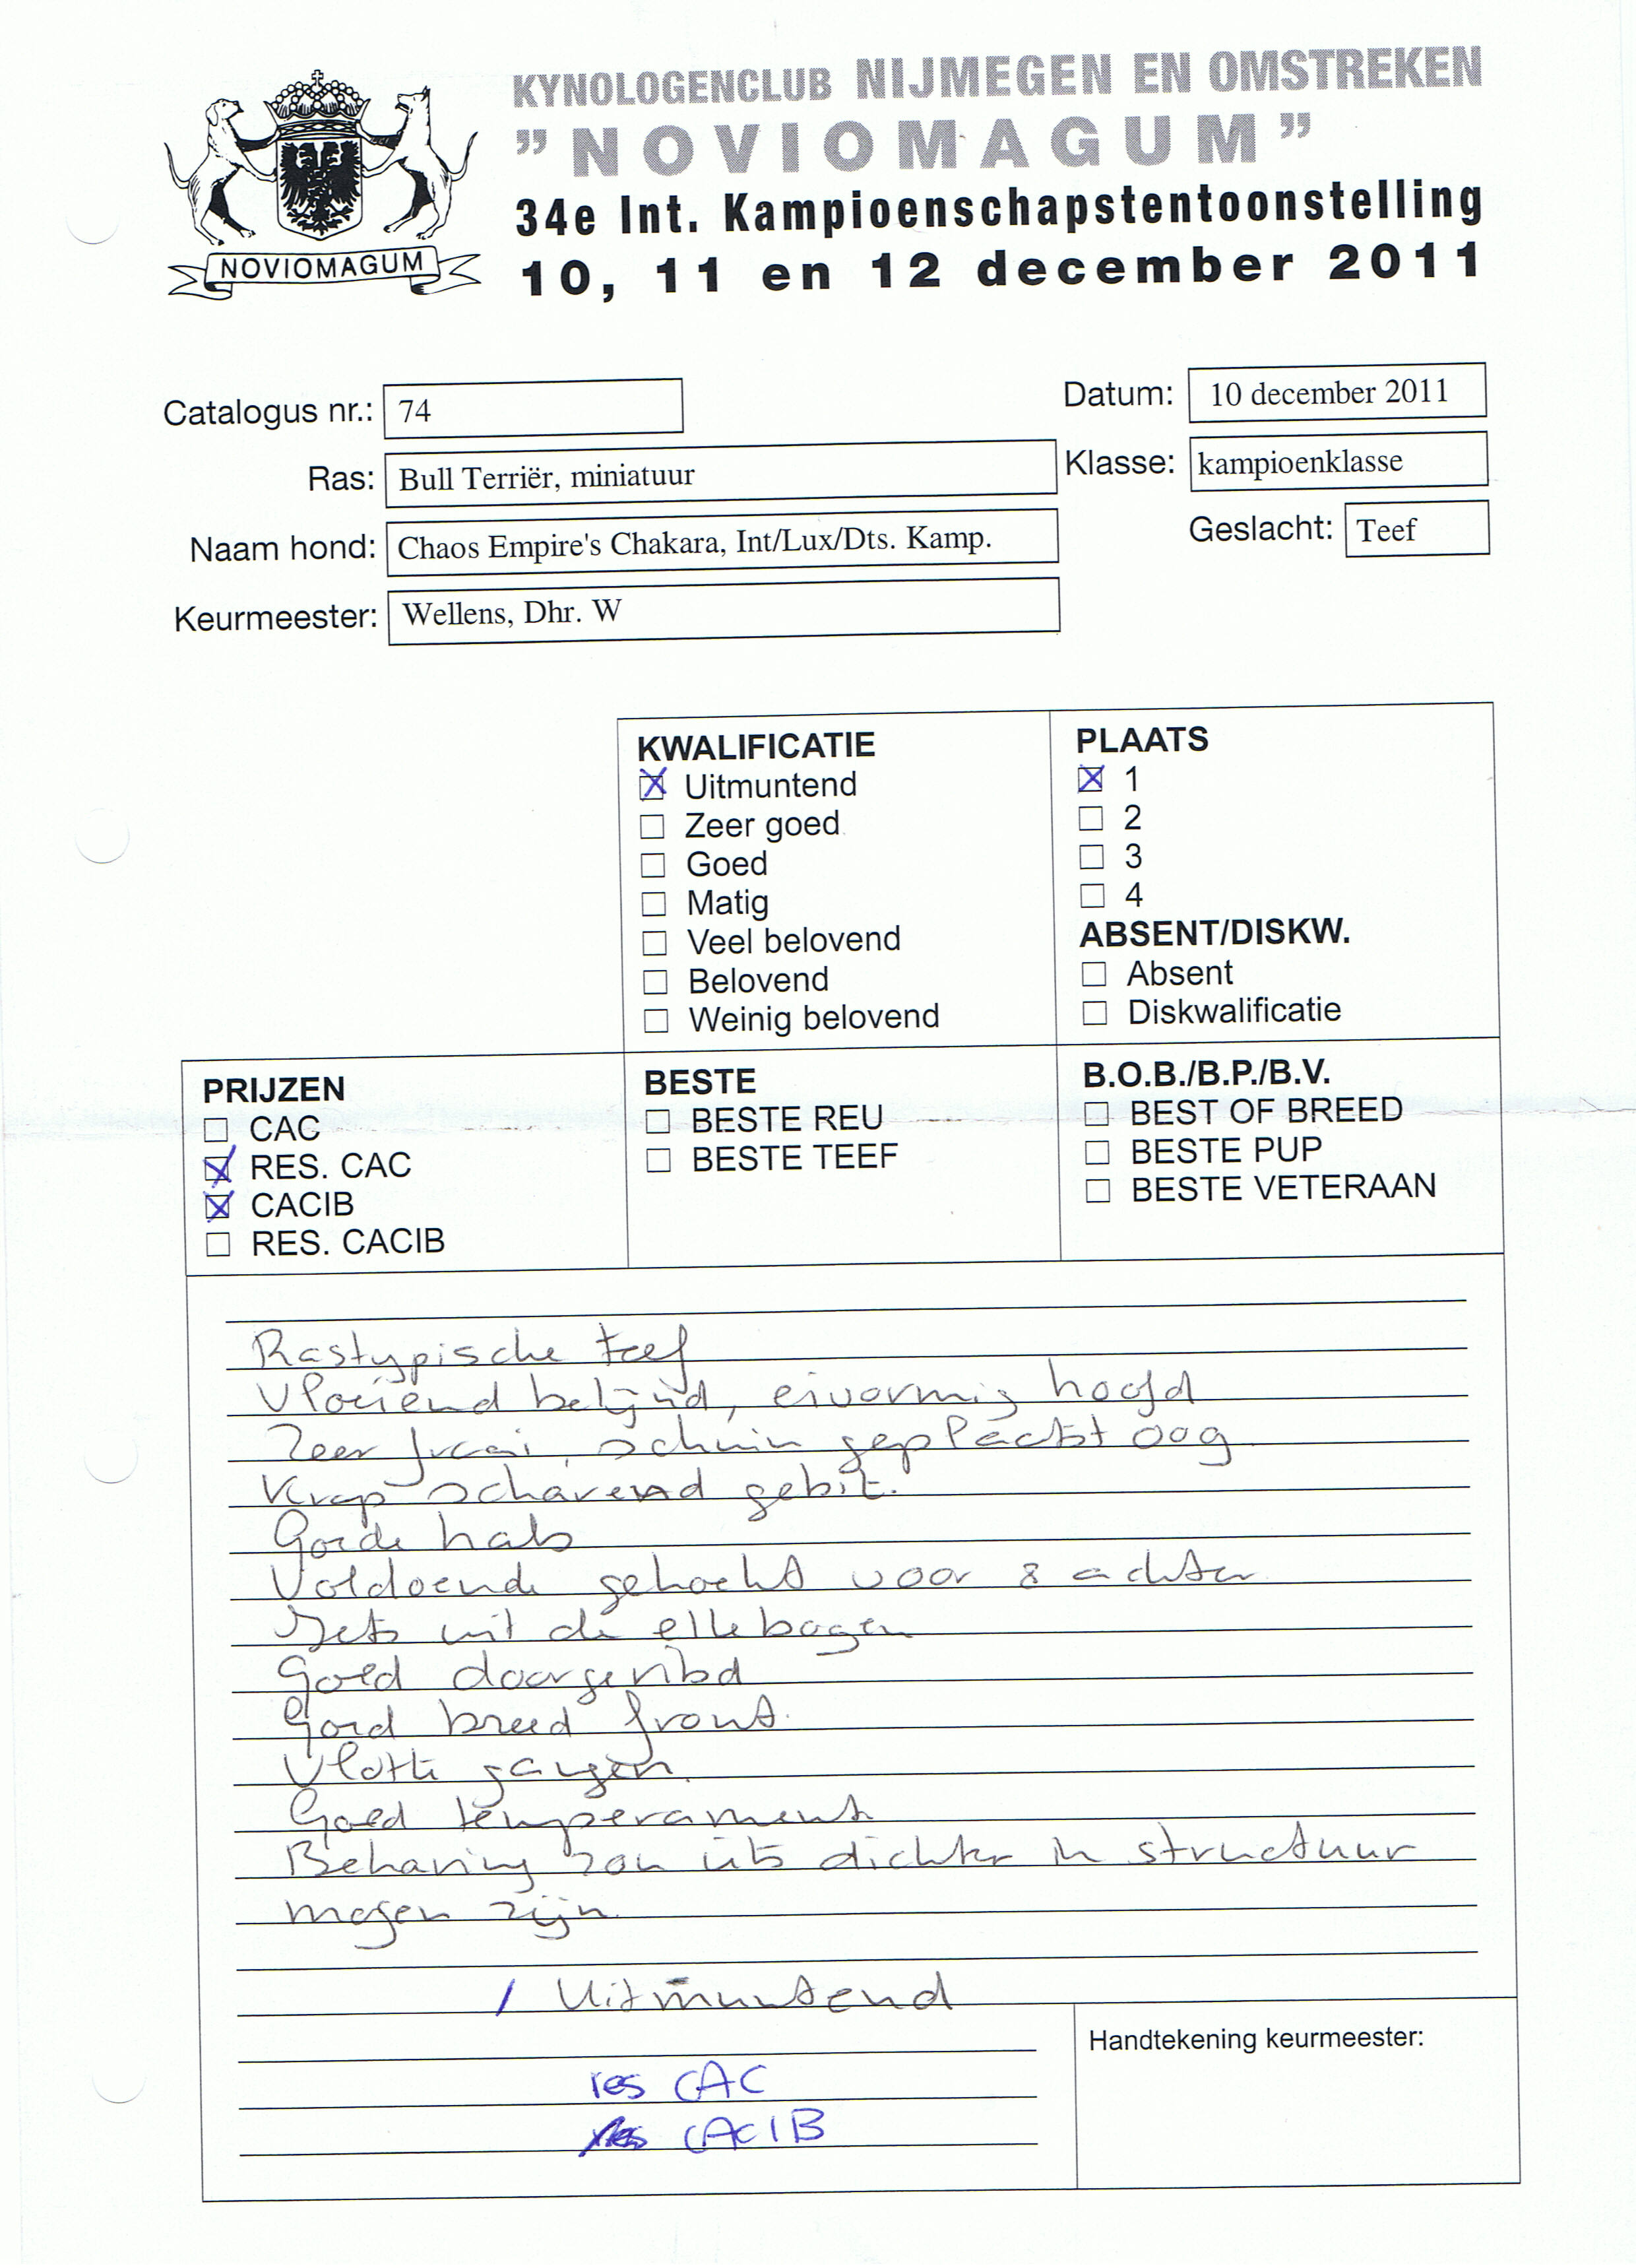 KYNOLOGENCLUB NIJMEGEN EN OMSTREKEN
"NOVIOMAGUM"
34e Int. Kampioenschapstentoonstelling
10, 11 en 12 december 2011
NOVIOMAGUM
Catalogus nr.: 74
Datum: 10 december 2011
Ras: Bull Terriër, miniatuur
Klasse: kampioenklasse
Naam hond: Chaos Empire's Chakara, Int/Lux/Dts. Kamp.
Geslacht: Teef
Keurmeester: Wellens, Dhr. W
KWALIFICATIE
Uitmuntend
Zeer goed
Goed
Matig
Veel belovend
Belovend
Weinig belovend
PLAATS
1
2
3
4
ABSENT/DISKW.
Absent
Diskwalificatie
PRIJZEN
CAC
RES. CAC
CACIB
RES. CACIB
BESTE
BESTE REU
BESTE TEEF
B.O.B./B.P./B.V.
BEST OF BREED
BESTE PUP
BESTE VETERAAN
Rastypische teef
Vloeiend belijnd, eivormig hoofd
Zeer fraai, schuin geplaatst oog
Krap scharend gebit.
Goede hals
Voldoende gehoekt voor & achter
Iets uit de ellebogen
Goed doorgeribd
Goed breed front.
Vlotte gangen.
Goed temperament
Beharing zou iets dichter in structuur
mogen zijn.
1 Uitmuntend
res CAC
CACIB
Handtekening keurmeester: